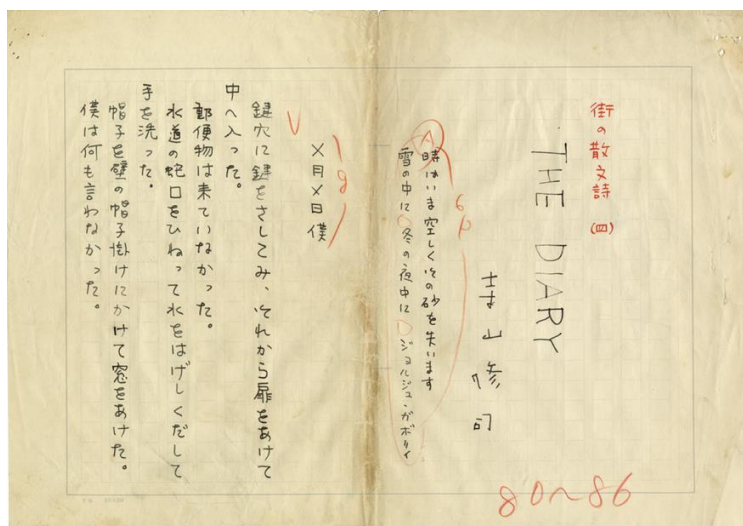 街の散文詩 (四)
THE DIARY
寺山修司
時はいま空しくその砂を失います
雪の中に 冬の夜中に ジョルジュ・ガボリイ
A
6P
18
×月×日 僕
鍵穴に鍵をさしこみ、それから扉をあけて
中へ入った。
郵便物は来ていなかった。
水道の蛇口をひねって水をはげしくだして
手を洗った。
帽子を壁の帽子掛けにかけて窓をあけた。
僕は何も言わなかった。
80~86